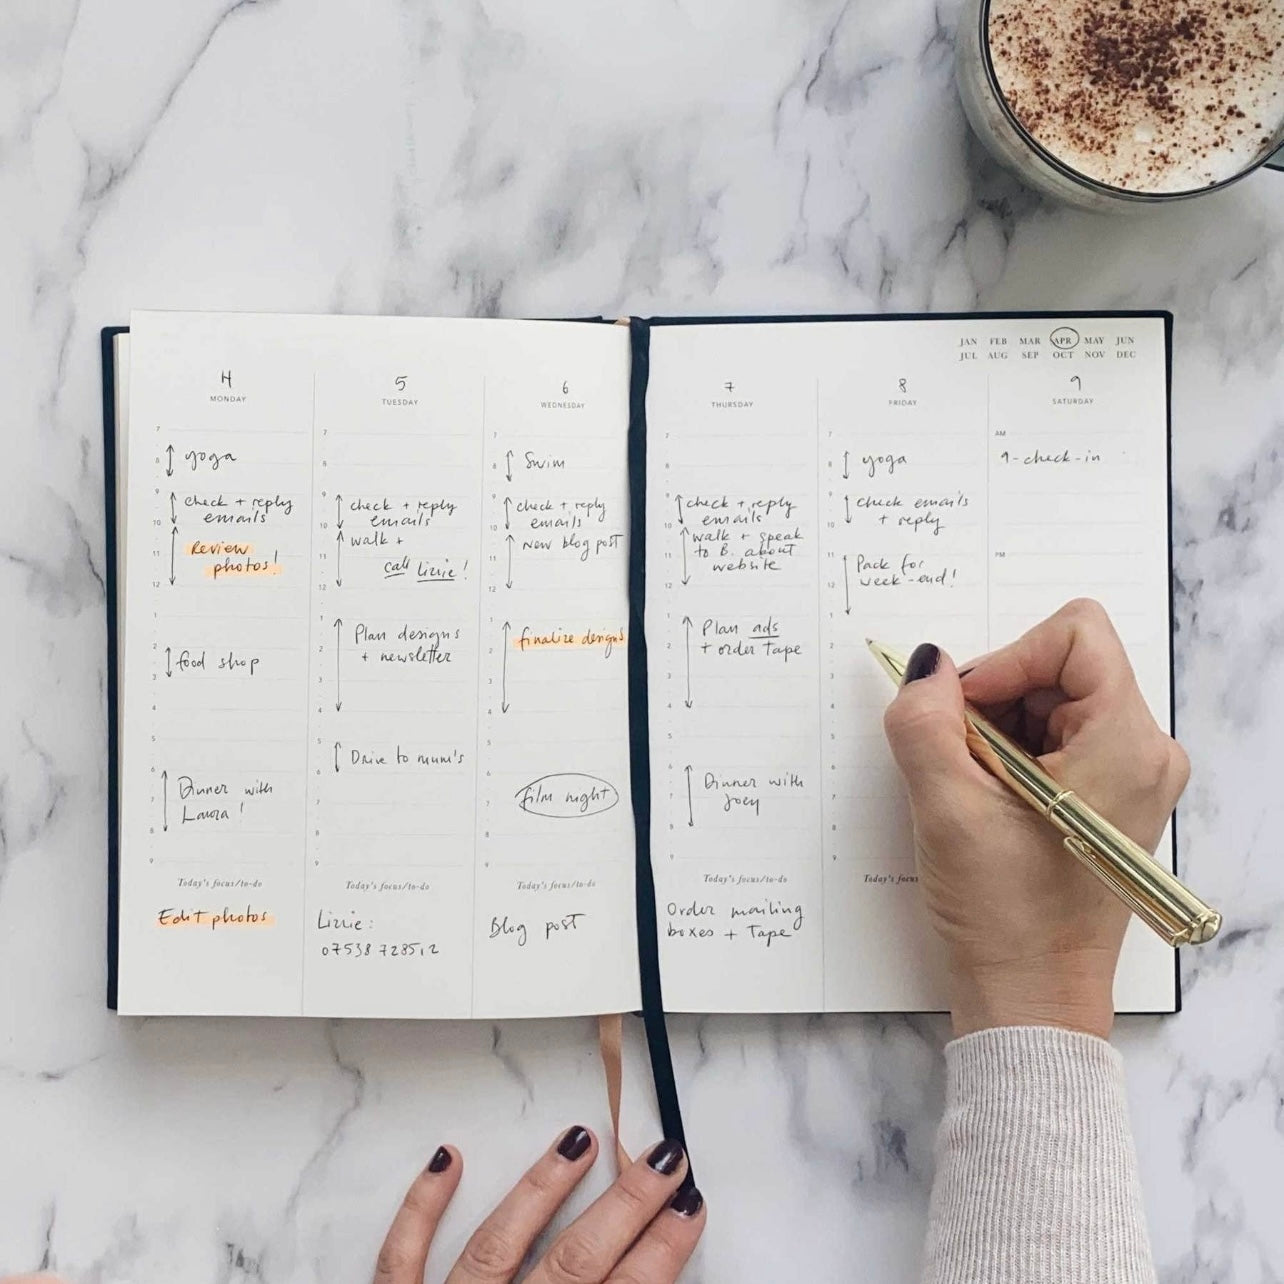 JAN FEB MAR APR MAY JUN
JUL AUG SEP OCT NOV DEC
4
MONDAY
7
8
yoga
9
check + reply
emails
10
Review
photos!
11
12
1
2
food shop
3
4
5
6
Dinner with
Laura!
7
8
9
Today's focus/to-do
Edit photos
5
TUESDAY
7
8
9
check + reply
emails
10
walk +
11
call Lizzie!
12
1
Plan designs
2
+ newsletter
3
4
5
Drive to mum's
6
7
8
9
Today's focus/to-do
Lizzie:
07538 728512
6
WEDNESDAY
7
8
Swim
9
check + reply
emails
10
New blog post
11
12
1
finalize designs
2
3
4
5
6
7
film night
8
9
Today's focus/to-do
Blog post
7
THURSDAY
7
8
9
check + reply
emails
10
walk + speak
to B. about
11
website
12
1
Plan ads
2
+ order Tape
3
4
5
6
Dinner with
Joey
7
8
9
Today's focus/to-do
Order mailing
boxes + Tape
8
FRIDAY
7
8
yoga
9
check emails
+ reply
10
11
Pack for
week-end!
12
1
2
3
4
5
6
7
8
9
Today's focus
9
SATURDAY
AM
9-check-in
PM